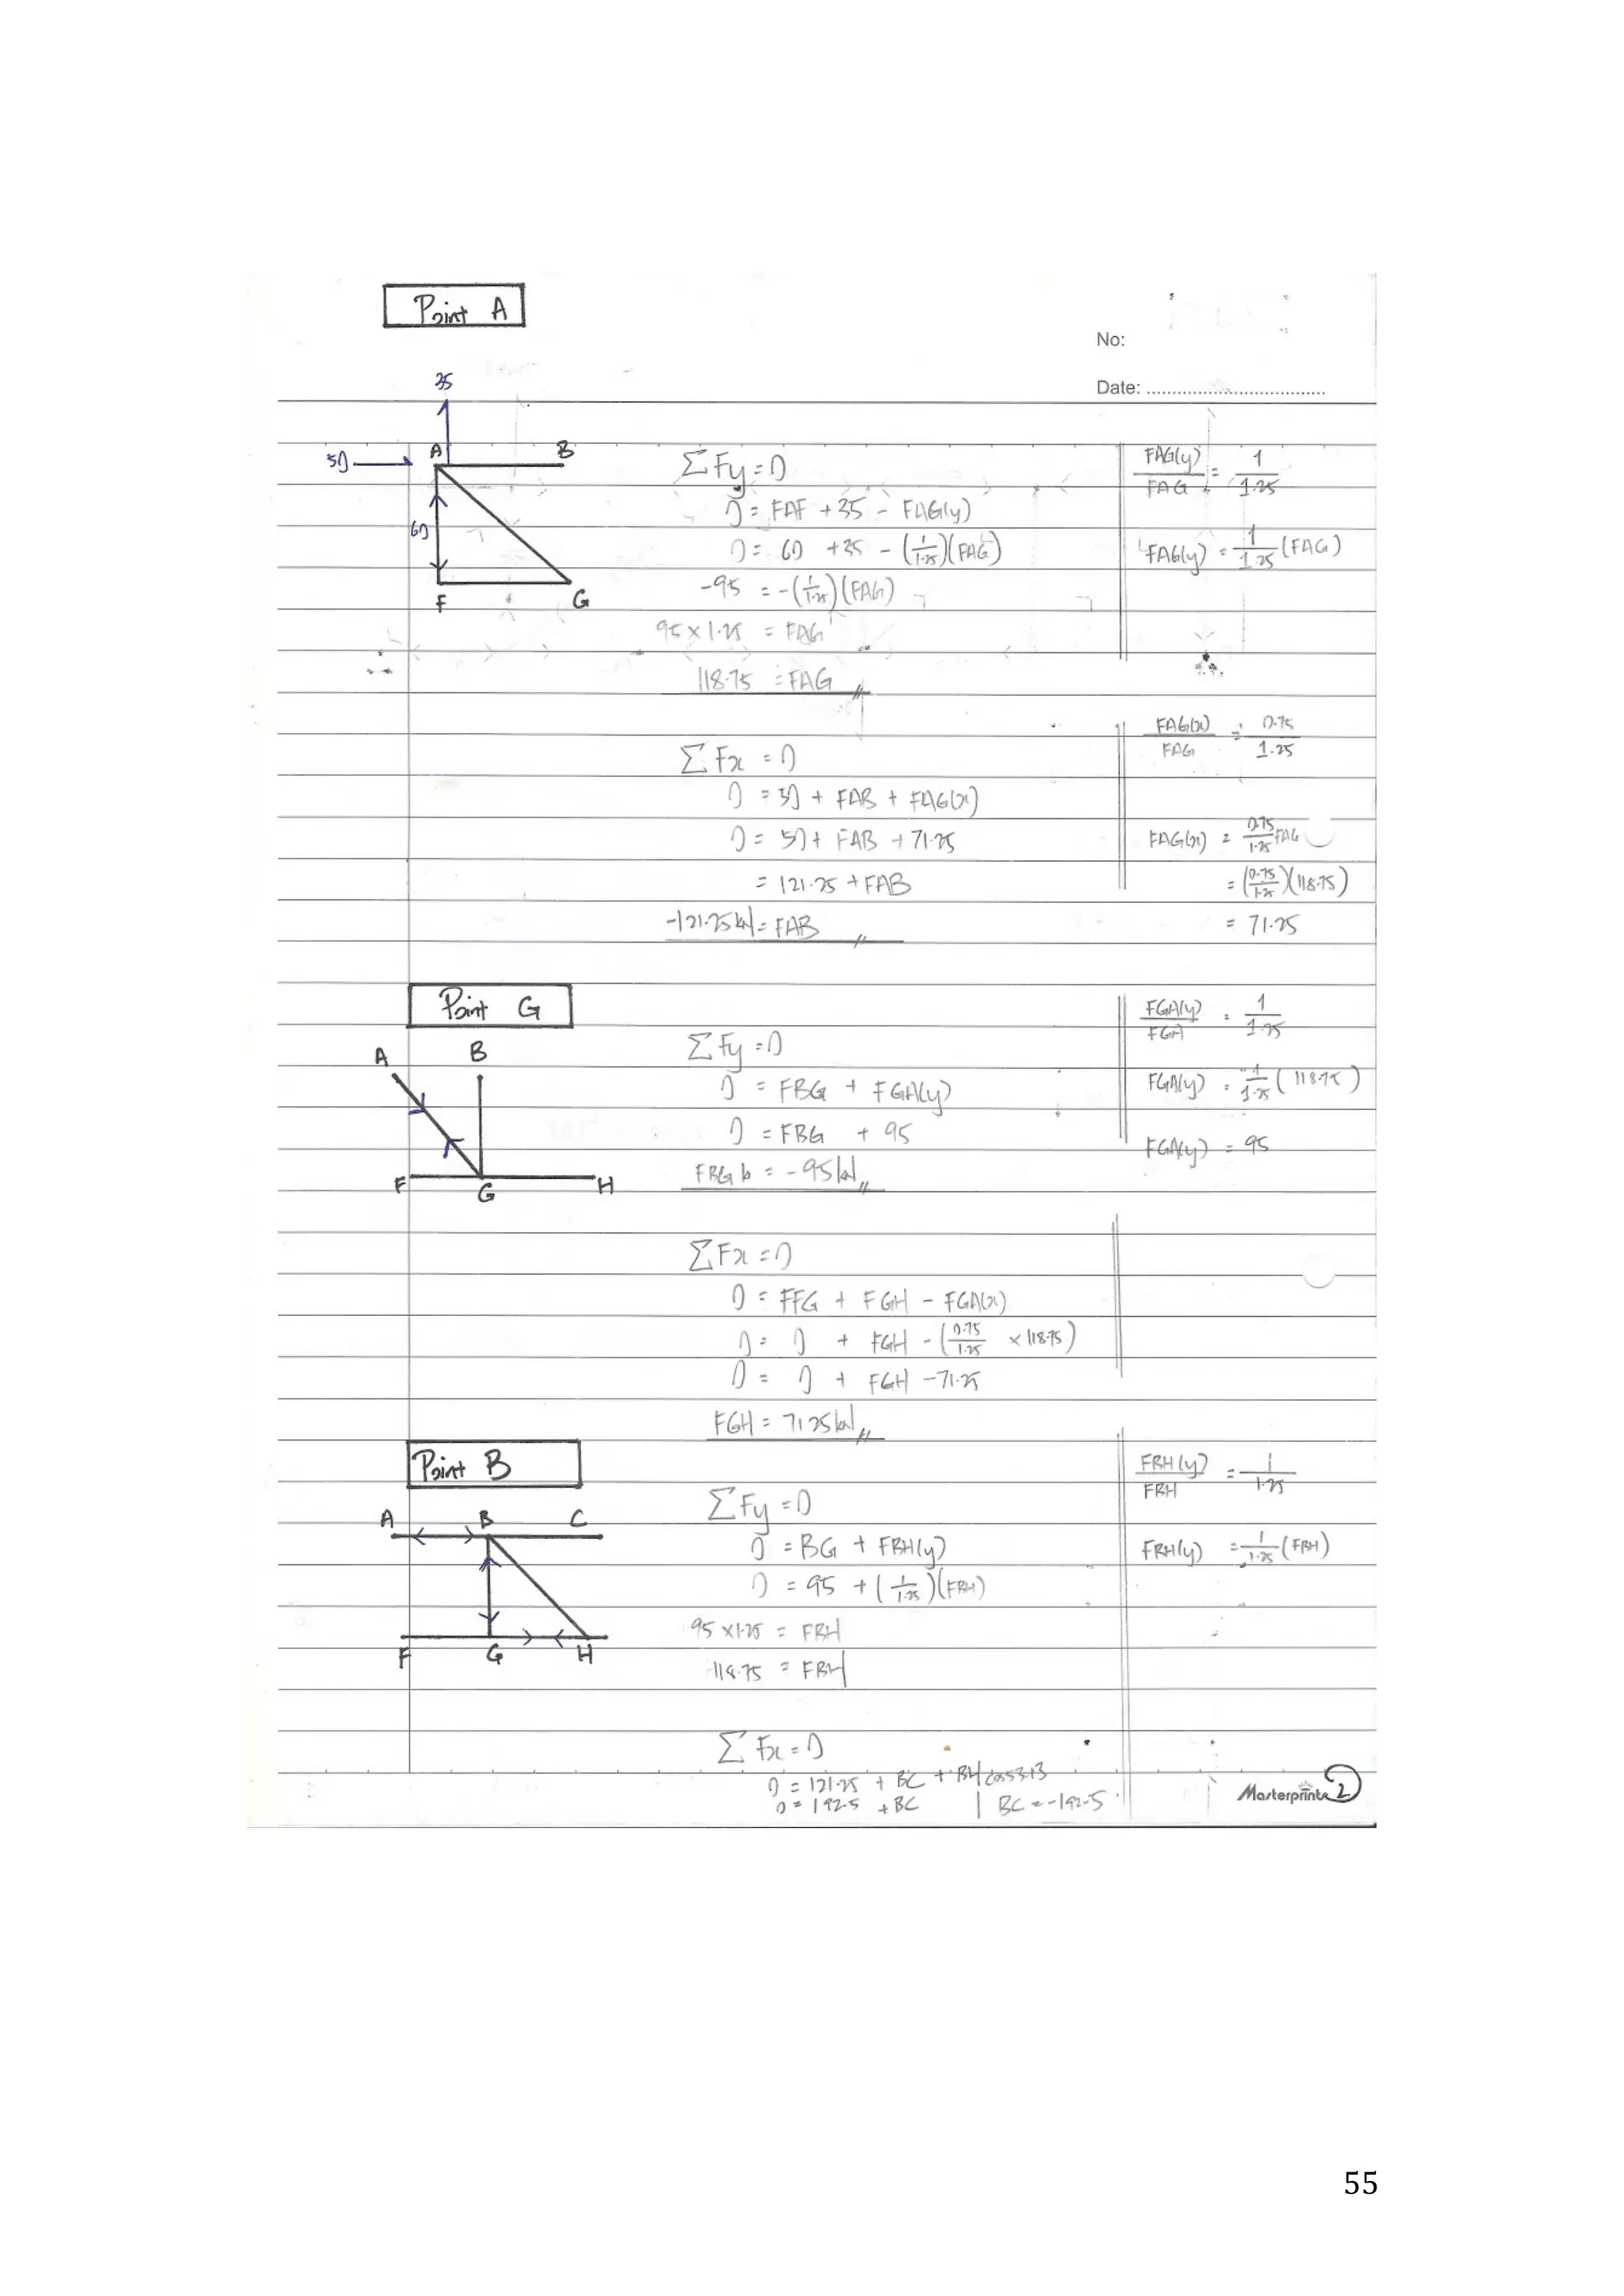 Point A
No:
Date: ..................................
35
50
A
B
60
F
G
ΣFy = 0
0 = FAF + 35 - FAG(y)
0 = 60 + 35 - (1/1.25)(FAG)
-95 = -(1/1.25)(FAG)
95 x 1.25 = FAG
118.75 = FAG
FAG(y)/FAG = 1/1.25
FAG(y) = 1/1.25 (FAG)
ΣFx = 0
0 = 50 + FAB + FAG(x)
0 = 50 + FAB + 71.25
= 121.25 + FAB
-121.25kN = FAB
FAG(x)/FAG = 0.75/1.25
FAG(x) = 0.75/1.25 FAG
= (0.75/1.25)(118.75)
= 71.25
Point G
A
B
F
G
H
ΣFy = 0
0 = FBG + FGA(y)
0 = FBG + 95
FBG = -95kN
FGA(y)/FGA = 1/1.25
FGA(y) = 1/1.25 (118.75)
FGA(y) = 95
ΣFx = 0
0 = FFG + FGH - FGA(x)
0 = 0 + FGH - (0.75/1.25 x 118.75)
0 = 0 + FGH - 71.25
FGH = 71.25kN
Point B
A B C
F G H
ΣFy = 0
0 = BG + FBH(y)
0 = 95 + (1/1.25)(FBH)
95 x 1.25 = FBH
118.75 = FBH
FBH(y)/FBH = 1/1.25
FBH(y) = 1/1.25 (FBH)
ΣFx = 0
0 = 121.25 + BC + BH cos53.13
0 = 192.5 + BC | BC = -192.5
Masterprint
2
55